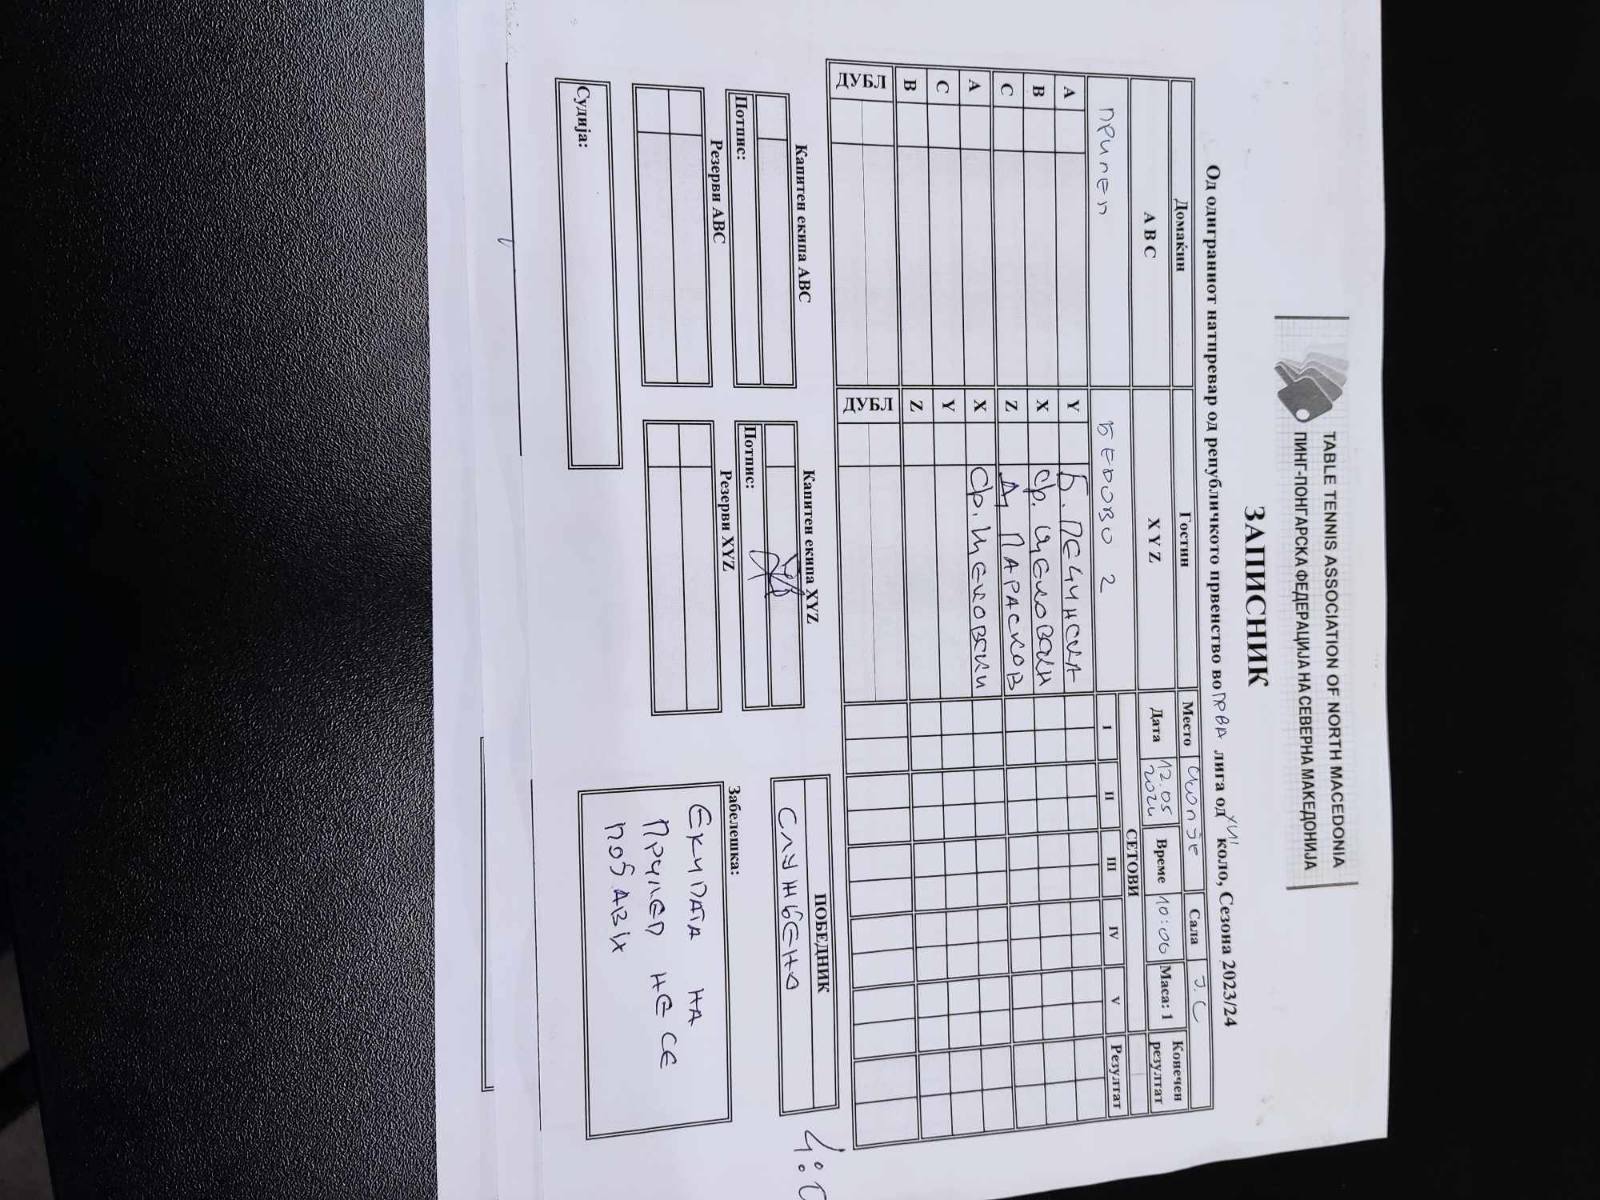 TABLE TENNIS ASSOCIATION OF NORTH MACEDONIA
ПИНГ-ПОНГАРСКА ФЕДЕРАЦИЈА НА СЕВЕРНА МАКЕДОНИЈА
ЗАПИСНИК
Од одиграниот натпревар од републичкото првенство во ПРВА лига од XVI коло, Сезона 2023/24
Домаќин Гостин Место Скопје Сала Ј.С Конечен резултат
A B C X Y Z Дата 12.05 2024 Време 10:00 Маса: 1
ПРИЛЕП БЕРОВО 2 СЕТОВИ
I II III IV V Резултат
A Y Б. ПЕЧИНСКА
B X СР. ЩЕКОВСКИ
C Z Д ПАРАСКОВ
A X СР. ЩЕКОВСКИ
C Y
B Z
ДУБЛ ДУБЛ
Капитен екипа ABC Капитен екипа XYZ ПОБЕДНИК
СЛУЖБЕНО 4:0
Потпис: Потпис:
Резерви ABC Резерви XYZ Забелешка:
ЕКИПАТА НА
ПРИЛЕП НЕ СЕ
ПОЈАВИ
Судија: